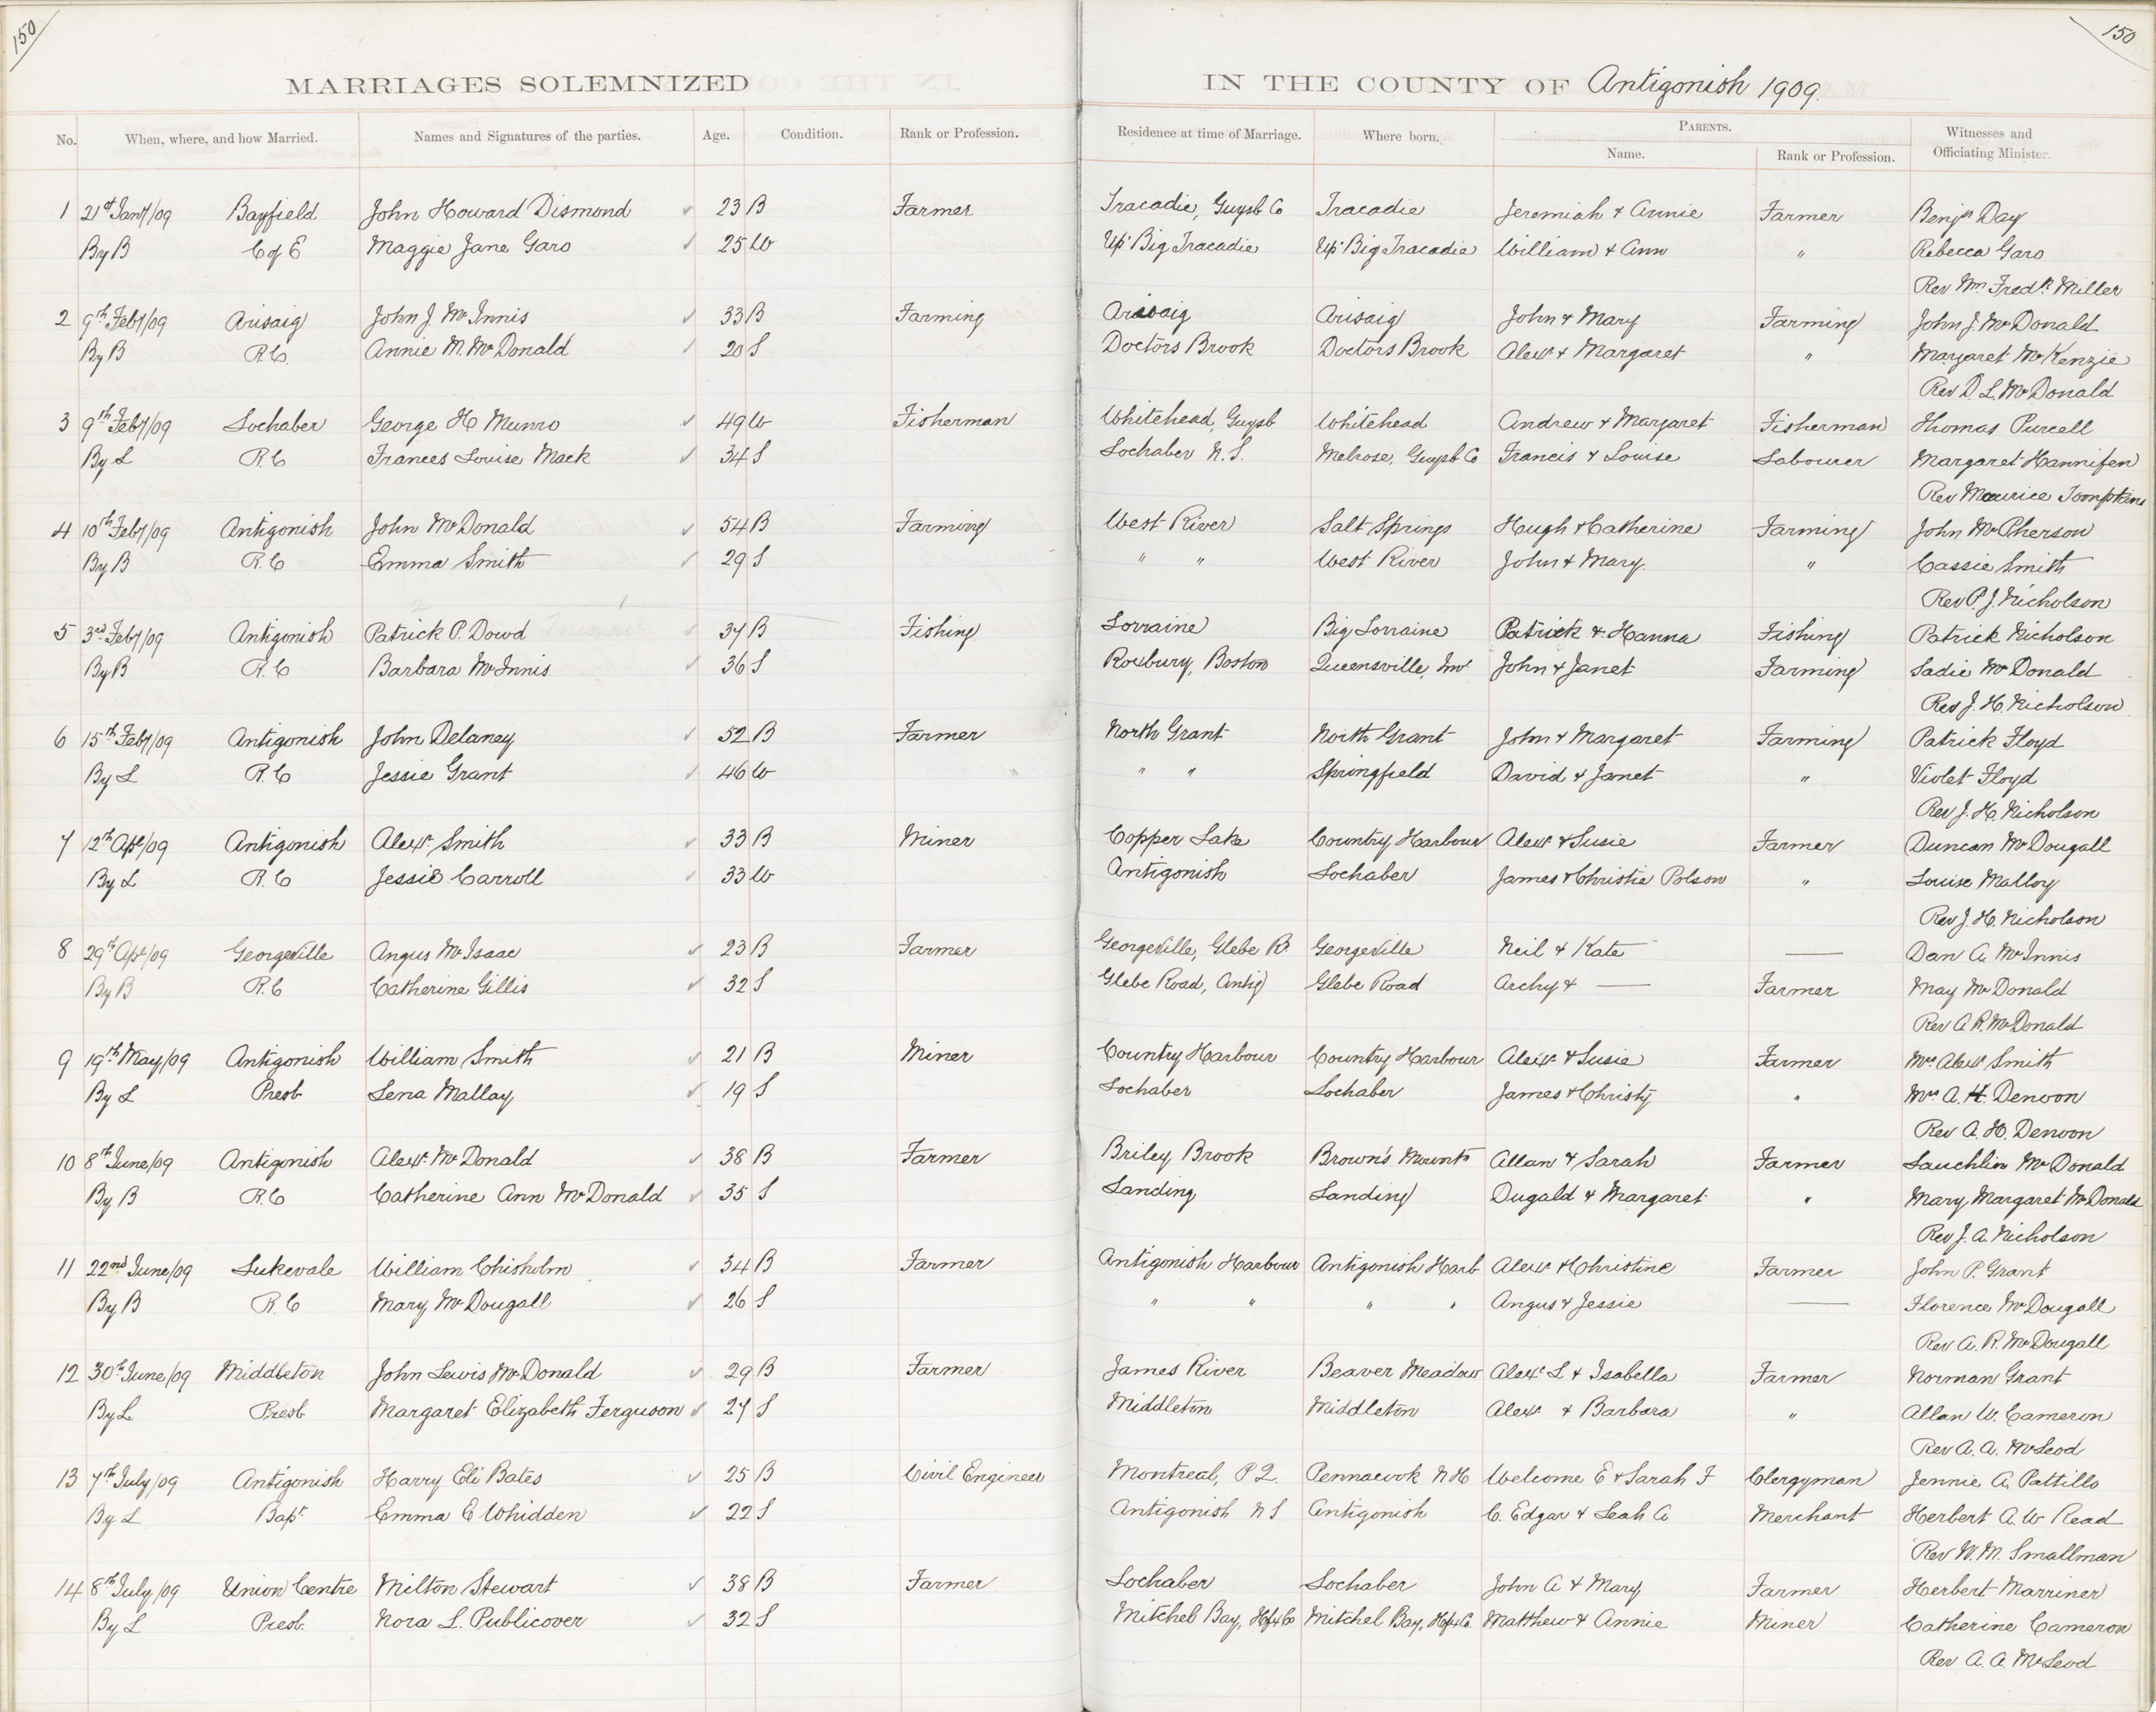 150
150
MARRIAGES SOLEMNIZED IN THE COUNTY OF Antigonish 1909.
No. When, where, and how Married. Names and Signatures of the parties. Age. Condition. Rank or Profession. Residence at time of Marriage. Where born. PARENTS. Name. Rank or Profession. Witnesses and Officiating Minister.
1 21st Jany/09 Bayfield John Howard Dismond 23 B Farmer Tracadie, Guysb Co Tracadie Jeremiah & Annie Farmer Benjn Day
By B C of E Maggie Jane Garo 25 W Up. Big Tracadie Up. Big Tracadie William & Ann " Rebecca Garo
Rev Wm Fredk Miller
2 9th Feby/09 Arisaig John J McInnis 33 B Farming Arisaig Arisaig John & Mary Farming John J. McDonald
By B R.C. Annie M. McDonald 20 S Doctors Brook Doctors Brook Alexr & Margaret " Margaret McKenzie
Rev D. L. McDonald
3 9th Feby/09 Lochaber George H Munro 49 W Fisherman Whitehead, Guysb Whitehead Andrew & Margaret Fisherman Thomas Purcell
By L R.C Frances Louise Mack 34 S Lochaber N.S. Melrose, Guysb Co Francis & Louise Labourer Margaret Hannifen
Rev Maurice Toompkins
4 10th Feby/09 Antigonish John McDonald 54 B Farming West River Salt Springs Hugh & Catherine Farming John McPherson
By B R.C Emma Smith 29 S " " West River John & Mary. " Cassie Smith
Rev P. J. Nicholson
5 3rd Feby/09 Antigonish Patrick P. Dowd 37 B Fishing Lorraine Big Lorraine Patrick & Hanna Fishing Patrick Nicholson
By B R.C Barbara McInnis 36 S Roxbury, Boston Queensville, Inv John & Janet Farming Sadie McDonald
Rev J. H. Nicholson
6 15th Feby/09 Antigonish John Delaney 52 B Farmer North Grant North Grant John & Margaret Farming Patrick Floyd
By L R.C Jessie Grant 46 W " " Springfield David & Janet " Violet Floyd
Rev J. H. Nicholson
7 12th Apl/09 Antigonish Alexr Smith 33 B Miner Copper Lake Country Harbour Alexr & Susie Farmer Duncan McDougall
By L R.C Jessie Carroll 33 W Antigonish Lochaber James & Christie Polson " Louise Malloy
Rev J. H. Nicholson
8 29th Apl/09 Georgeville Angus McIsaac 23 B Farmer Georgeville, Glebe Rd Georgeville Neil & Kate — Dan A. McInnis
By B R.C Catherine Gillis 32 S Glebe Road, Antig Glebe Road Archy & — Farmer May McDonald
Rev A. R. McDonald
9 19th May/09 Antigonish William Smith 21 B Miner Country Harbour Country Harbour Alexr & Susie Farmer Mrs Alexr Smith
By L Presb Lena Mallay 19 S Lochaber Lochaber James & Christy " Mrs A. H. Denoon
Rev A. H. Denoon
10 8th June/09 Antigonish Alexr McDonald 38 B Farmer Briley Brook Brown's Mountn Allan & Sarah Farmer Lauchlin McDonald
By B R.C Catherine Ann McDonald 35 S Landing Landing Dugald & Margaret " Mary Margaret McDonald
Rev J. A. Nicholson
11 22nd June/09 Lukevale William Chisholm 34 B Farmer Antigonish Harbour Antigonish Harb Alexr & Christine Farmer John P. Grant
By B R.C Mary McDougall 26 S " " " " Angus & Jessie — Florence McDougall
Rev A. R. McDougall
12 30th June/09 Middleton John Lewis McDonald 29 B Farmer James River Beaver Meadow Alexr L & Isabella Farmer Norman Grant
By L. Presb Margaret Elizabeth Ferguson 27 S Middleton Middleton Alexr & Barbara " Allan W. Cameron
Rev A. A. McLeod
13 7th July/09 Antigonish Harry Eli Bates 25 B Civil Engineer Montreal, P Q. Pennacook N H Welcome E & Sarah F Clergyman Jennie A. Pattillo
By L Bapt Emma E Whidden 22 S Antigonish N S Antigonish C. Edgar & Leah A Merchant Herbert A. W Read
Rev W. M. Smallman
14 8th July/09 Union Centre Milton Stewart 38 B Farmer Lochaber Lochaber John A & Mary Farmer Herbert Marriner
By L Presb. Nora L. Publicover 32 S Mitchel Bay, Hfx Co Mitchel Bay, Hfx Co. Matthew & Annie Miner Catherine Cameron
Rev A. A. McLeod